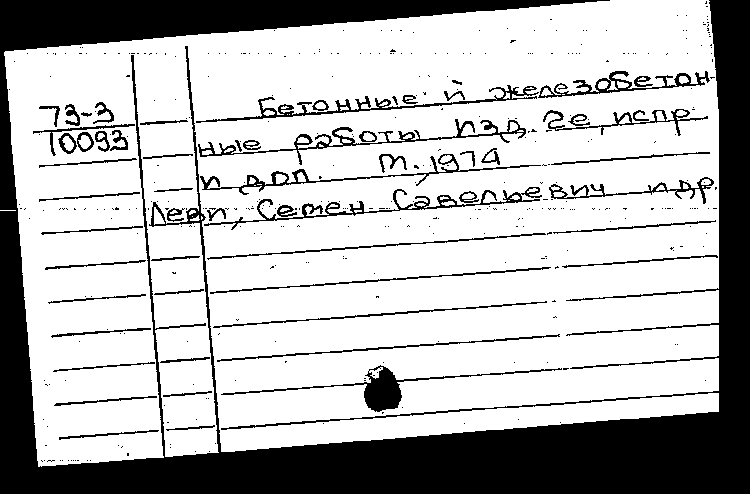 73-3
10093
Бетонные и железобетон
ные работы изд. 2е, испр
и доп. М., 1974
Леви, Семен Савельевич и др